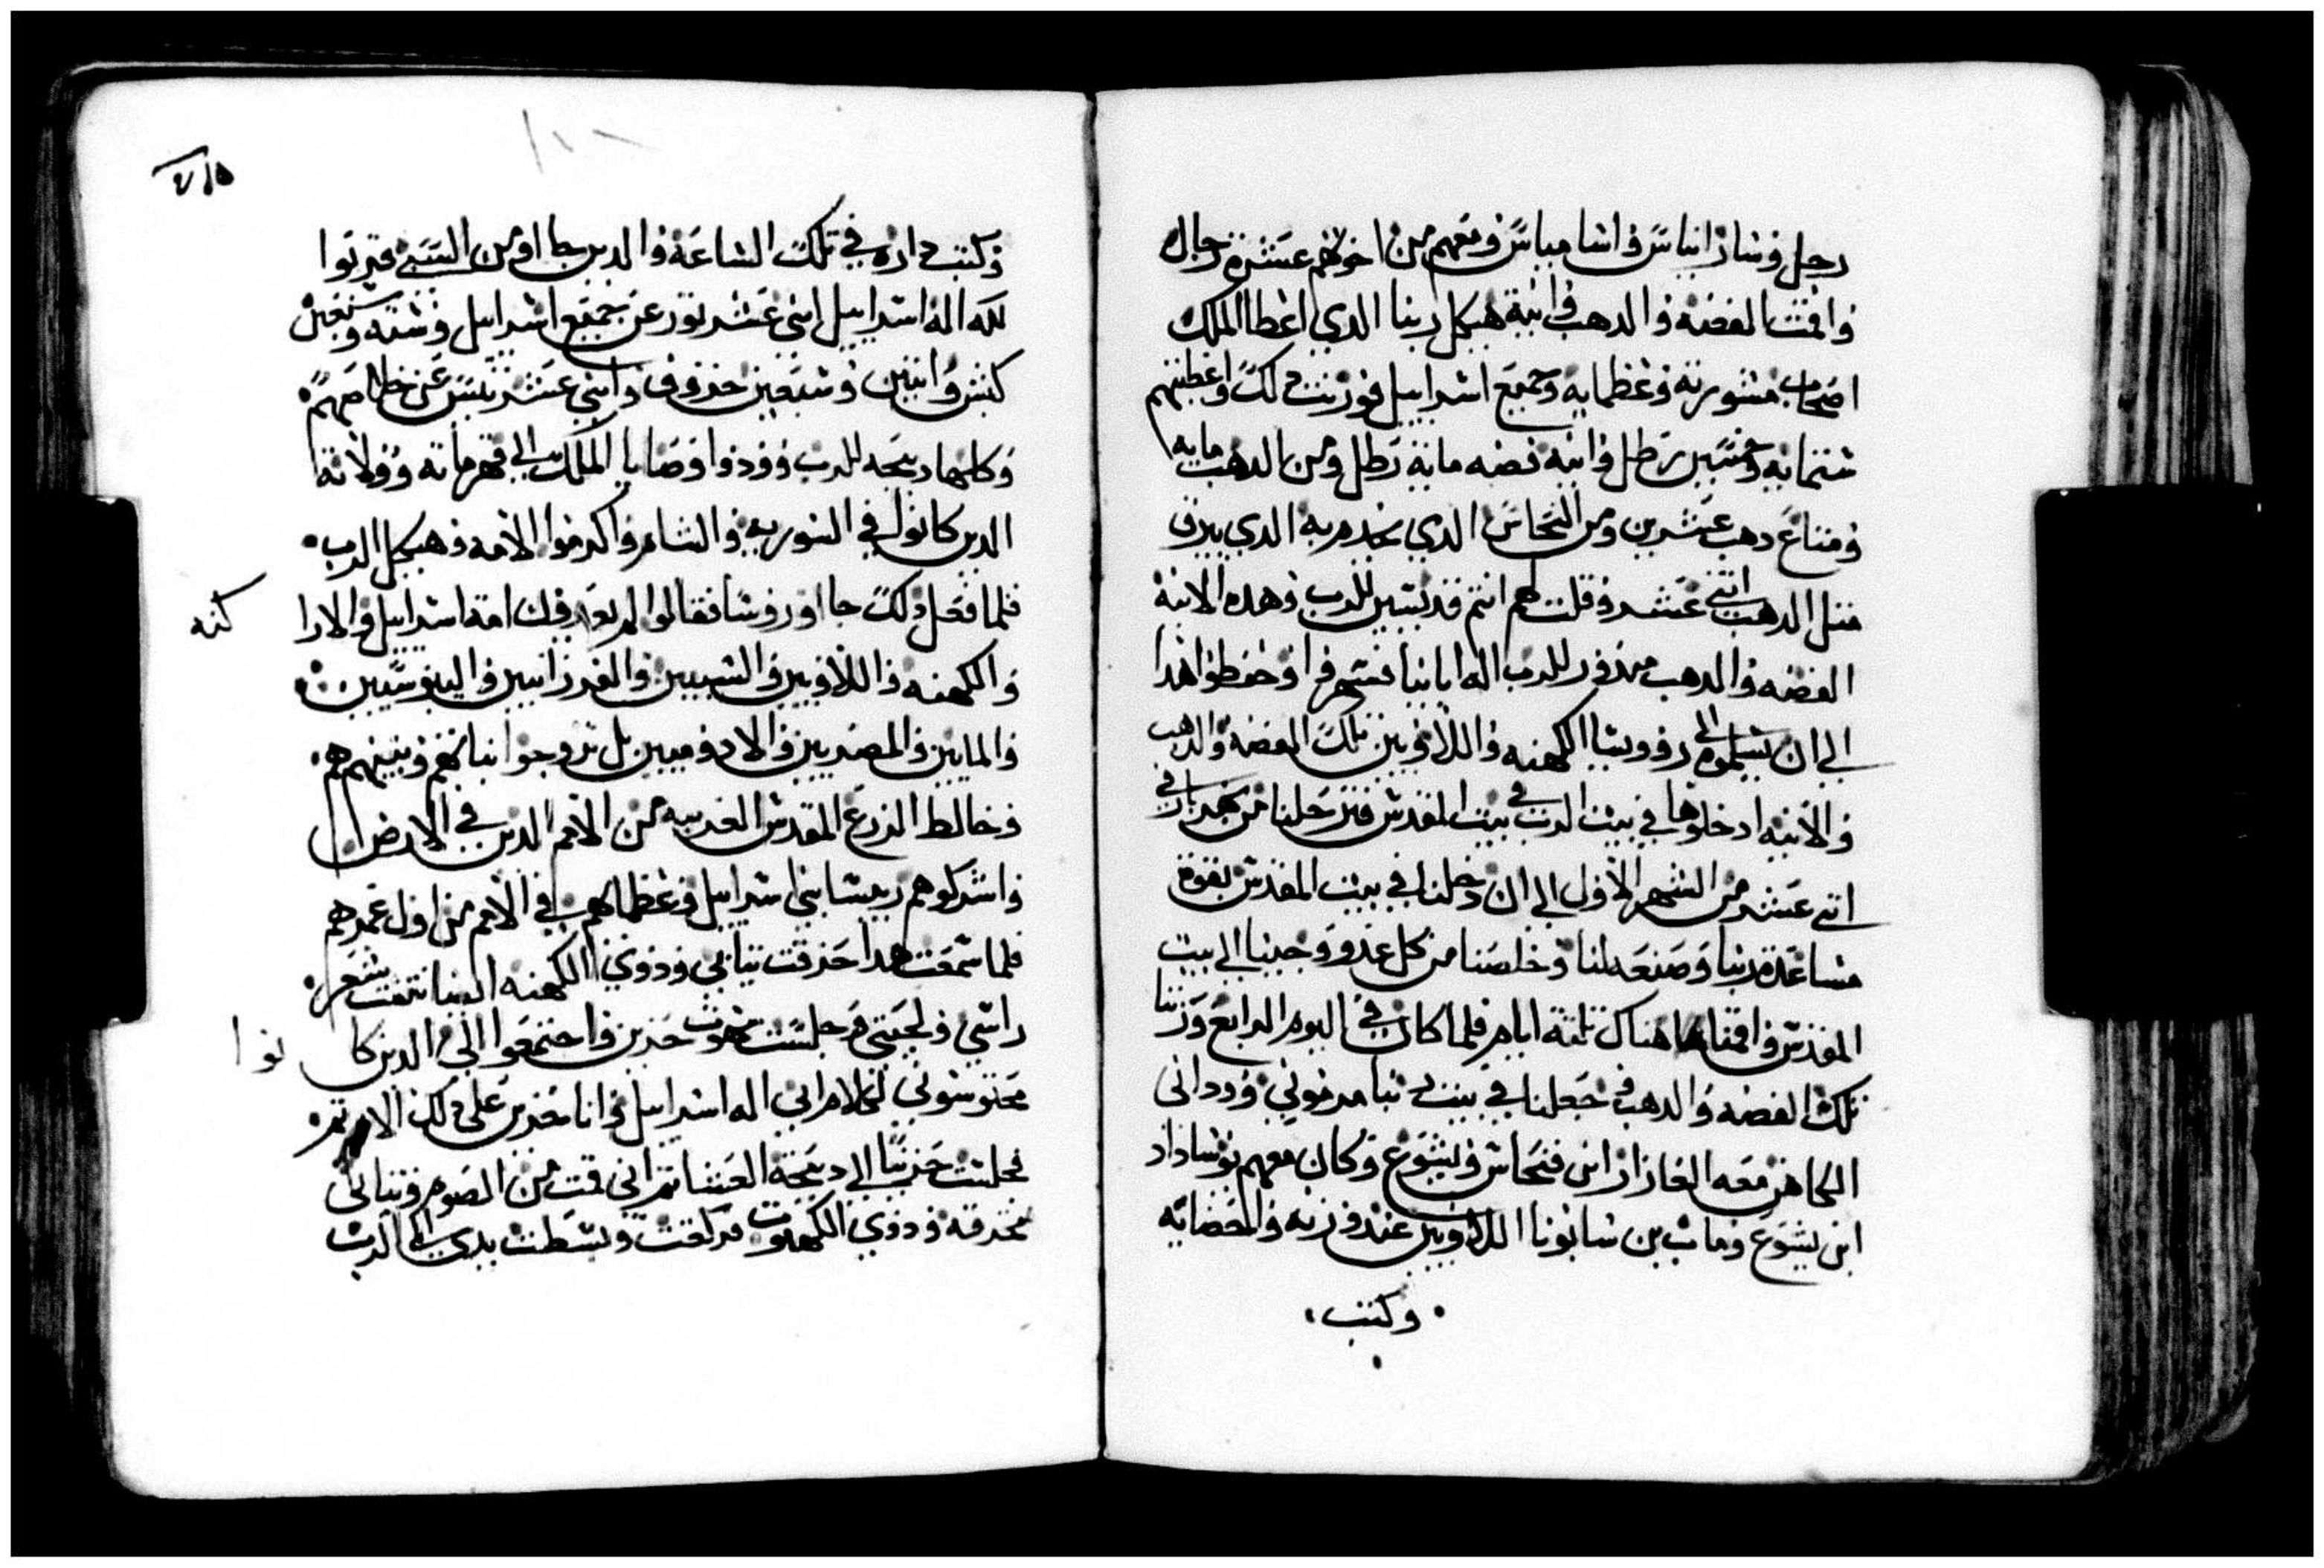 رجل وسارانياس واساميياس ومعهم من اخوتهم عشرة رجال
واقمت الفضه والدهب وانية هيكل ربنا الدي اعطا الملك
اصحاب مشورته وعظمايه وجميع اسراييل فوزنت دلك واعطيتهم
ستمايه وخمسين رطل وانيه فضه ماية رطل ومن الدهب مايه
ومتاع دهب عشرين ومن النحاس الدي يخدم به الدي يبرق
متل الدهب اتني عشر وقلت لهم انتم قديسين للرب وهده الانية
الفضه والدهب مندور للرب اله اباينا فسهروا وحفظوا هدا
الي ان تسلموه الى روويسا الكهنه واللاويين تلك الفضه والدهب
والانيه ادخلوها في بيت الرب في بيت المقدس فتزحلنا من نهر تارا في
اتني عشر من الشهر الاول الي ان دخلنا في بيت المقدس بقوة
مساعدة ربنا وصنعه لنا وخلصنا من كل عدو وجينا الى بيت
المقدس واقمنا هناك تلتة ايام فلما كان في اليوم الرابع وزنا
تلك الفضه والدهب وجعلنا في بيت ربنا مرموتي وودانى
الكاهن ومعه العازار ابن فنحاس ويشوع وكان معهم يوساداد
ابن يشوع وماث بن سانونا اللاويين عند وزنه والحضايه
وكتب
وكتب وازن في تلك الساعة والدين جاا ومن السبي قربوا
لله اله اسراييل اتني عشر تور عن جميع اسراييل وسته وتسعين
كبش واتنين وسبعين خروف واتني عشر تيس عن خطاهم
وكلها دبيحه للرب وودوا وصايا الملك الي قهرماته وولاته
الدين كانوا في السوريه والشام واكرموا الامه وهيكل الرب
فلما فعل دلك جااو روسا فقالوا لم يعرفك امة اسراييل والارا
كنه
والكهنه واللاويين والشيبين والفرزانيين واليبوسيين
والمابين والمصريين والادوميين بل تزوجوا بناتهم وبنيهم هم
وخالط الزرع المقدس الغريبه من الامم الدين في الارض
واشركوهم ريسا بني اسراييل وعظماهم في الامم من اول عمرهم
فلما سمعت هدا خرقت تيابي وذوي الكهنه التياب نتفت شعر
راسي ولحيتي وجلست مبهوت حزين واجتمعوا الي الدين كا نوا
محتوشوني لكلام ابي اله اسراييل وانا محزن على دلك الامر تم
فجلست حزينا الى دبيحة العشا تم اني قمت من الصوم وتيابي
مخرقه وذوي الكهنوت فركعت وبسطت يدي الى الرب